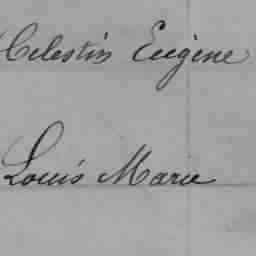 Celestin Eugène
Louis Marie